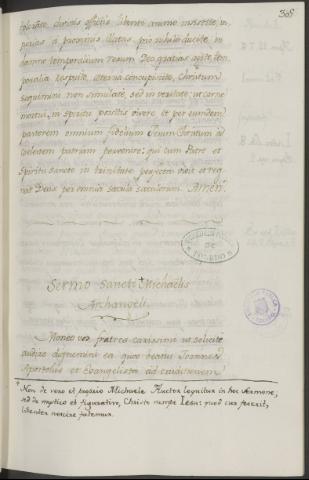 305
tolerate, charitatis officiis libenti animo insistite, in-
jurias a proximis illatas pro nihilo ducite, in
damno temporalium rerum Deo gratias agite, tem-
poralia respuite, aeterna concupiscite, Christum
sequimini non simulate, sed in veritate: ut carne
mortui, in spiritu possitis vivere, et per eumdem
pastorem omnium fidelium Jesum Christum ad
coelestem patriam pervenire: qui cum Patre et
Spiritu Sancto in trinitate perfecta vivit et reg-
nat Deus per omnia saecula saeculorum. Amen.
Sermo Sancti * Michaëlis
Archangeli.
Moneo vos fratres carissimi ut solicite
audire dignemini ea quae beatus Joannes
Apostolus et Evangelista ad eruditionem
* Non de vero et proprio Michaele Auctor loquitur in hoc sermone,
sed de mystico et figurativo, Christo nempe Jesu: quod cur fecerit,
libenter nescire fatemur.